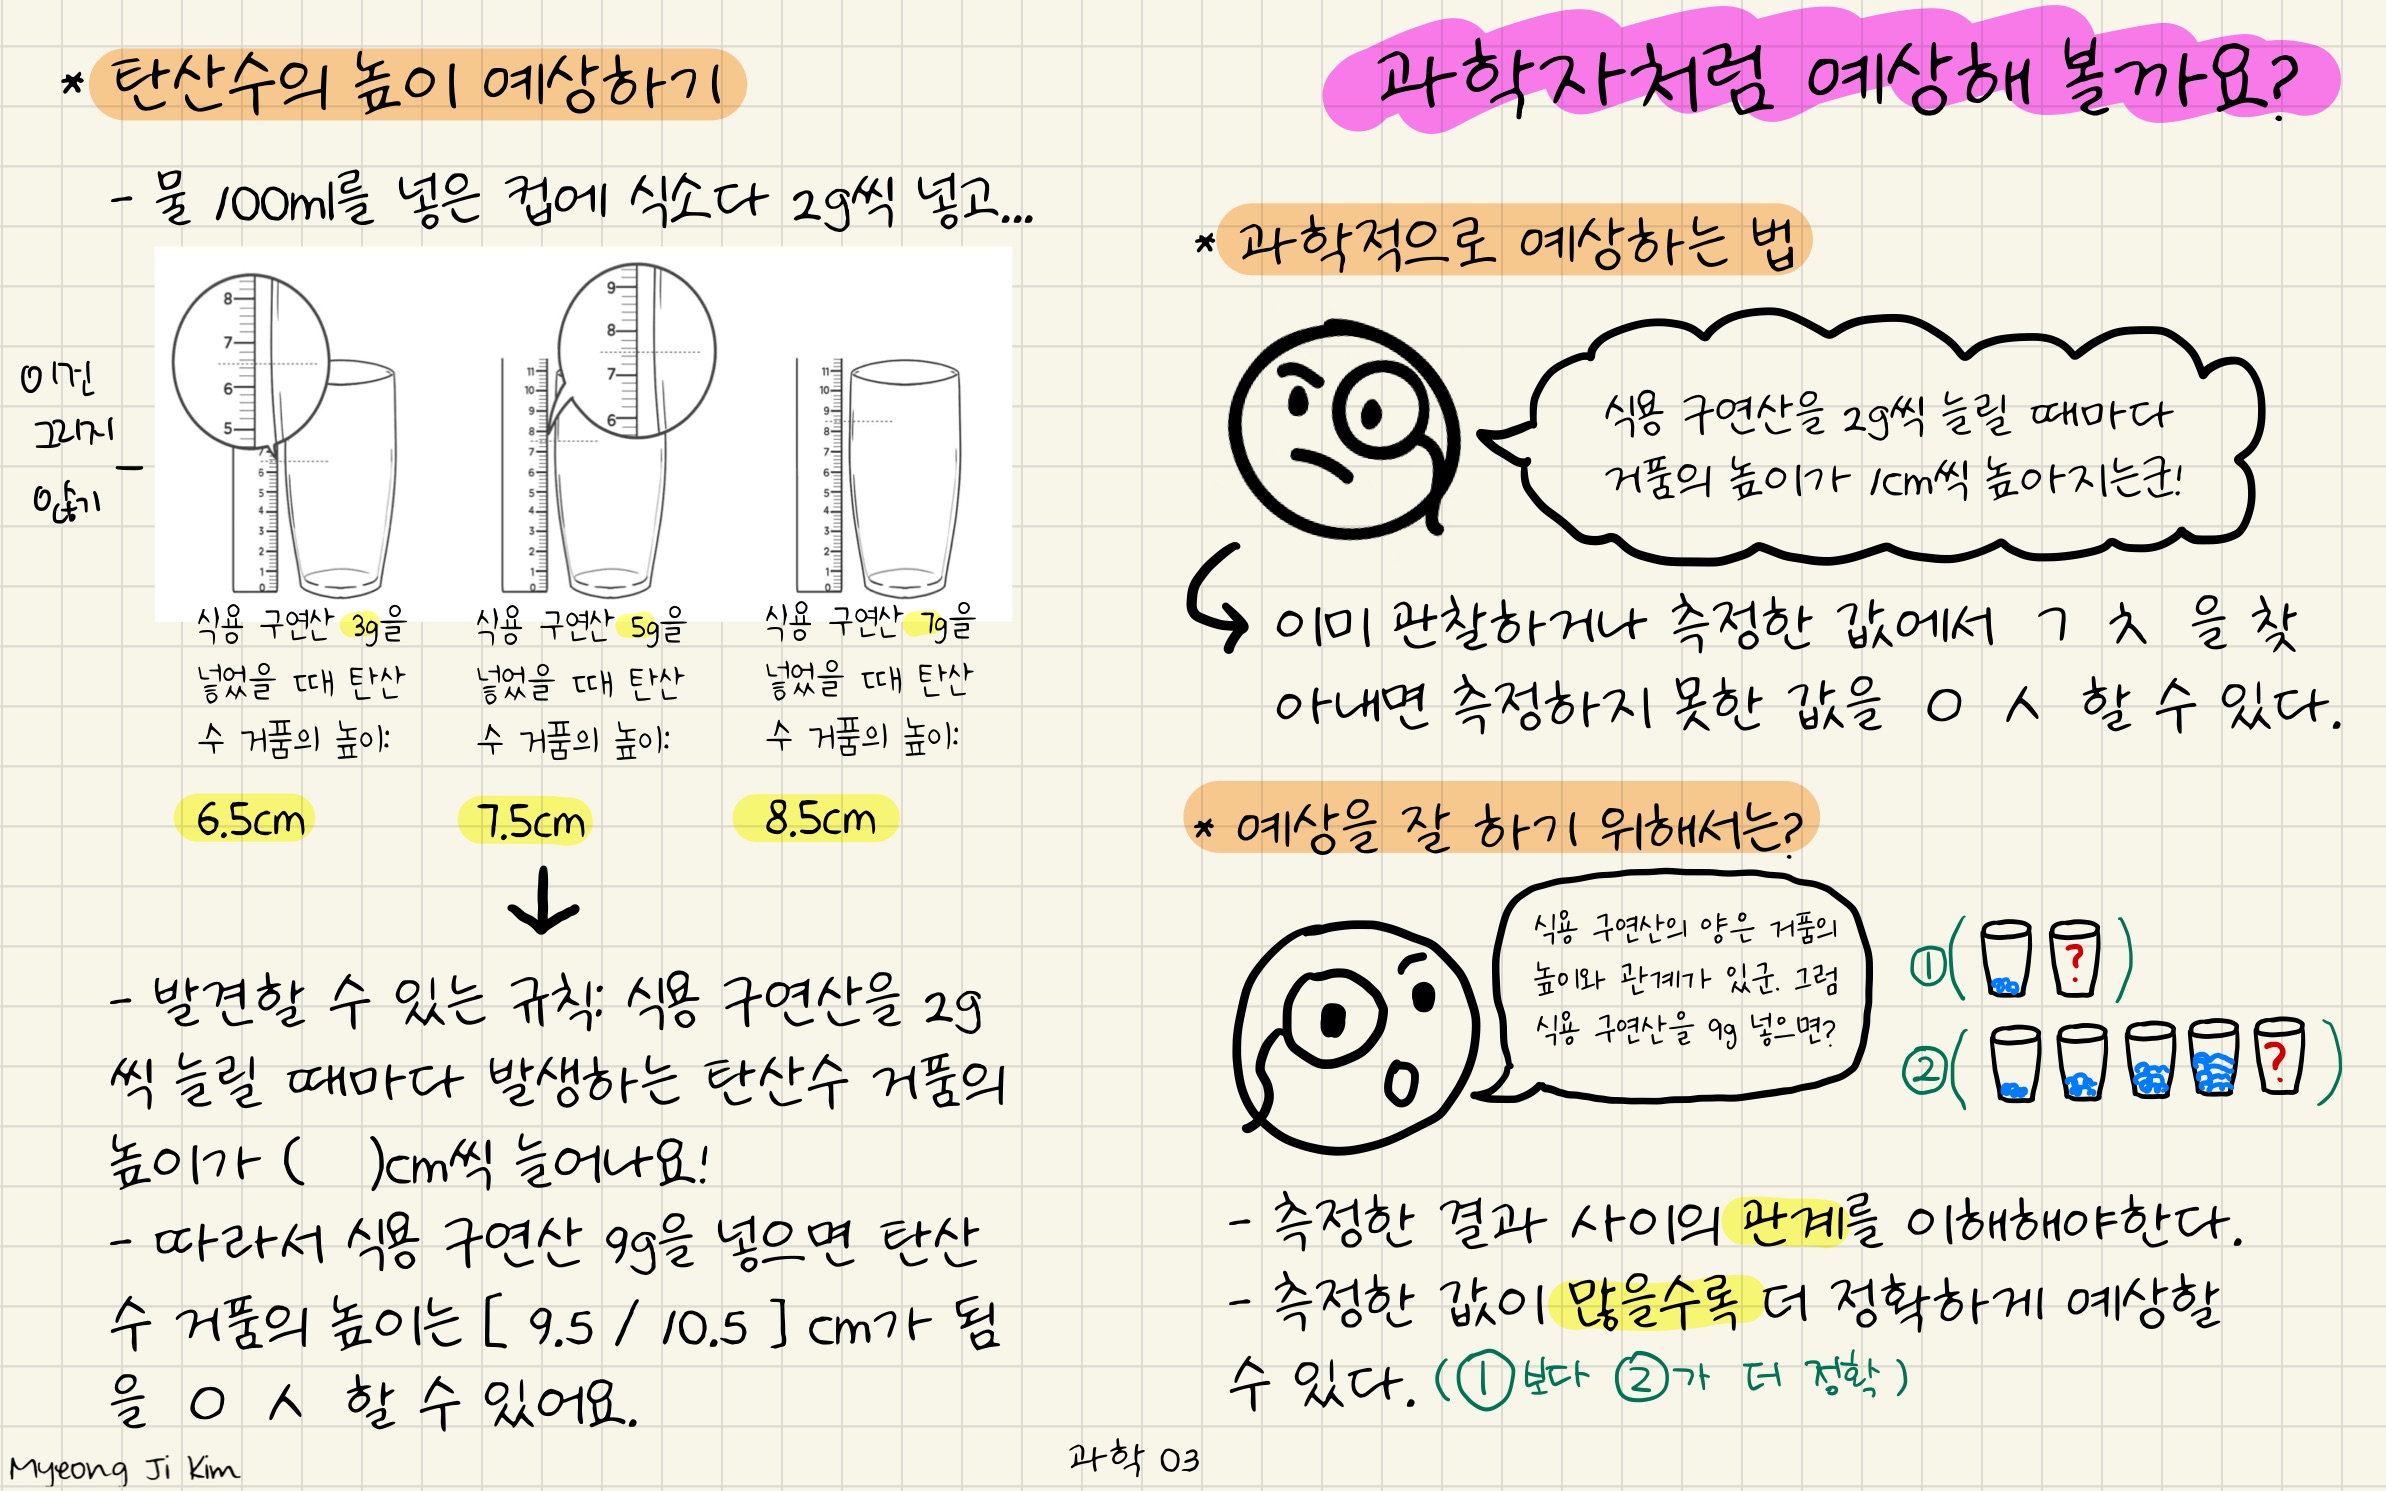 * 탄산수의 높이 예상하기
- 물 100ml를 넣은 컵에 식소다 2g씩 넣고...
이건
그리지
않기
8
7
6
5
9
8
7
6
7
6
5
4
3
2
1
0
11
10
9
8
7
6
5
4
3
2
1
0
11
10
9
8
7
6
5
4
3
2
1
0
식용 구연산 3g을
넣었을 때 탄산
수 거품의 높이:
6.5cm
식용 구연산 5g을
넣었을 때 탄산
수 거품의 높이:
7.5cm
식용 구연산 7g을
넣었을 때 탄산
수 거품의 높이:
8.5cm
- 발견할 수 있는 규칙: 식용 구연산을 2g
씩 늘릴 때마다 발생하는 탄산수 거품의
높이가 ( )cm씩 늘어나요!
- 따라서 식용 구연산 9g을 넣으면 탄산
수 거품의 높이는 [ 9.5 / 10.5 ] cm가 됨
을 ㅇ ㅅ 할 수 있어요.
Myeong Ji Kim
과학자처럼 예상해 볼까요?
* 과학적으로 예상하는 법
식용 구연산을 2g씩 늘릴 때마다
거품의 높이가 1cm씩 높아지는군!
이미 관찰하거나 측정한 값에서 ㄱ ㅊ 을 찾
아내면 측정하지 못한 값을 ㅇ ㅅ 할 수 있다.
* 예상을 잘 하기 위해서는?
식용 구연산의 양은 거품의
높이와 관계가 있군. 그럼
식용 구연산을 9g 넣으면?
① ( ? )
② ( ? )
- 측정한 결과 사이의 관계를 이해해야한다.
- 측정한 값이 많을수록 더 정확하게 예상할
수 있다. (①보다 ②가 더 정확)
과학 03